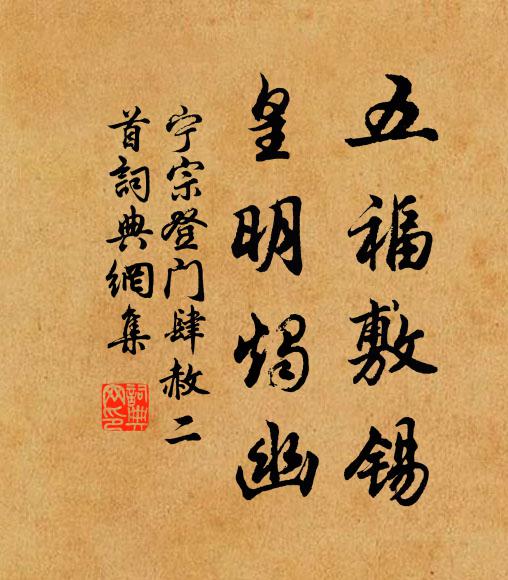 五福敷锡
皇明烛幽
宁宗登门肆赦二
首詞典網集
詞典網印